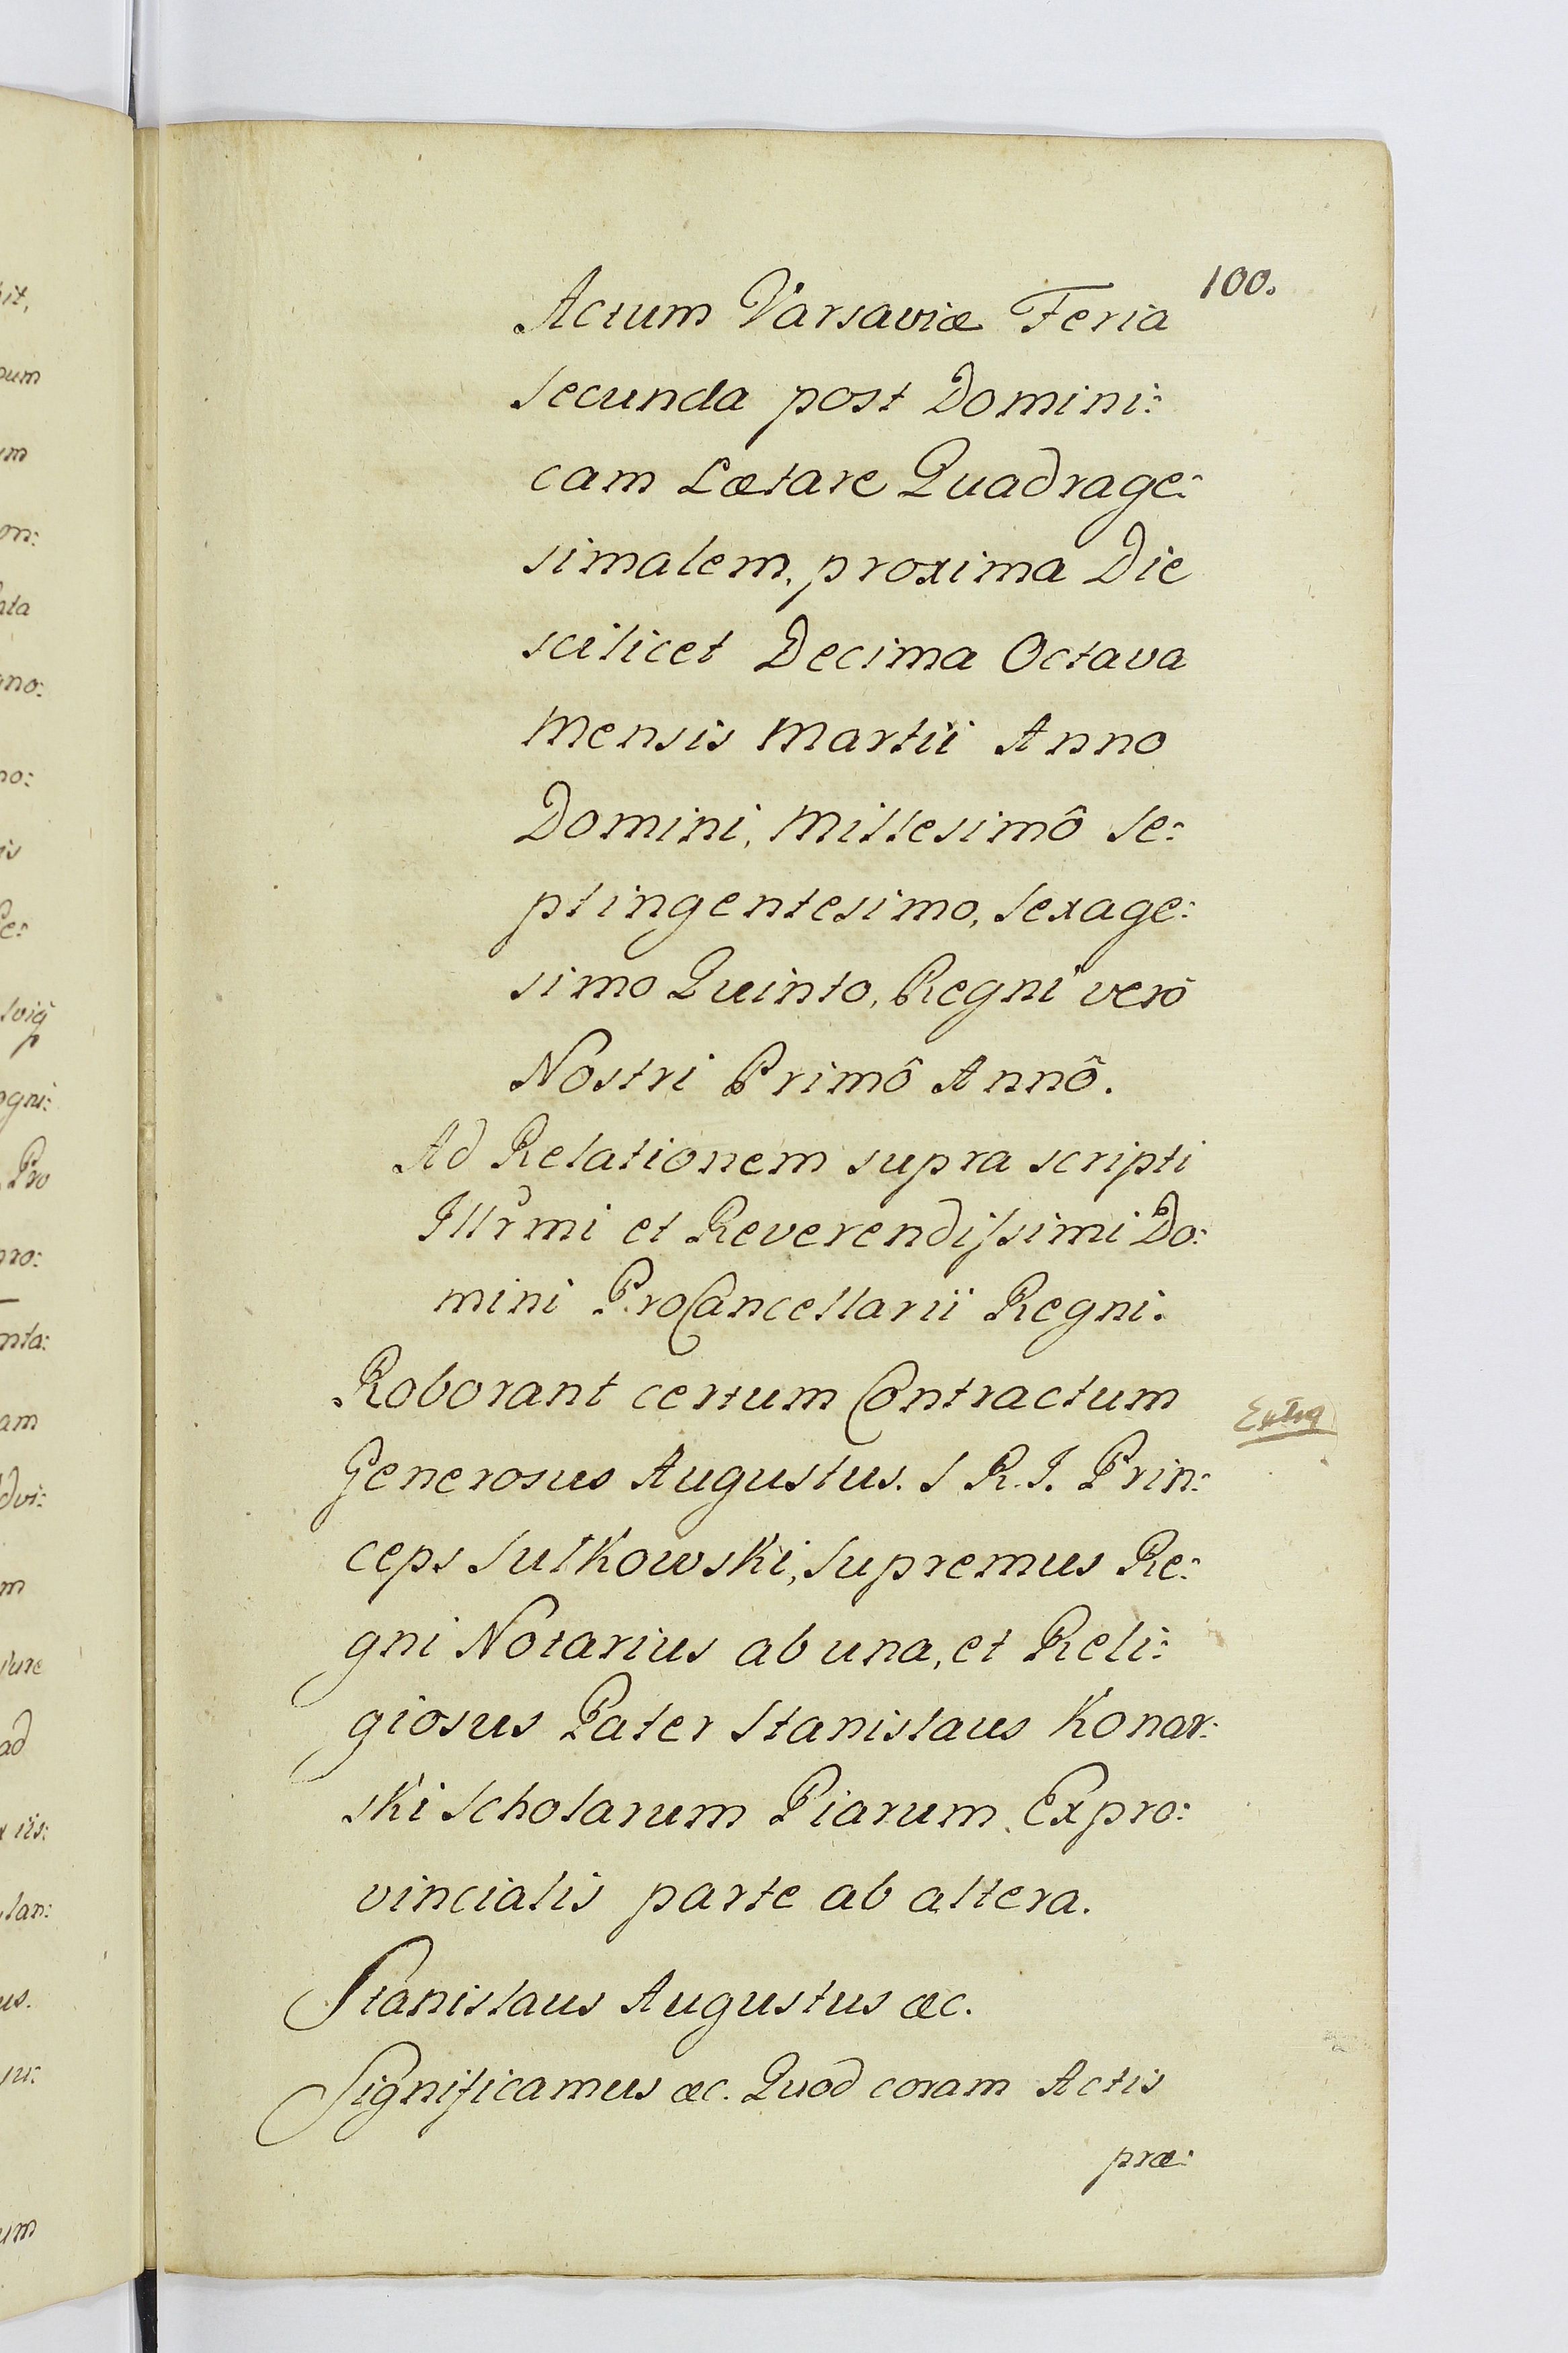 100.
Actum Varsaviæ Feria
secunda post Domini:
cam Lætare Quadrage:
simalem, proxima Die
scilicet Decima Octava
Mensis Martii Anno
Domini, Millesimô Se:
ptingentesimo, Sexage:
simo Quinto, Regni verò
Nostri Primô Annô.
Ad Relationem supra scripti
Illrmi et Reverendissimi Do:
mini ProCancellarii Regni.
Roborant certum Contractum
Generosus Augustus. S R. I. Prin:
ceps Sulkowski, Supremus Re:
gni Notarius ab una, et Reli:
giosus Pater Stanislaus Konar:
ski Scholarum Piarum Expro:
vincialis parte ab altera.
Stanislaus Augustus &c.
Significamus &c. Quod coram Actis
præ: